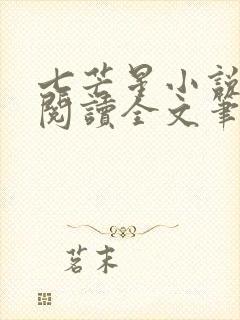 七芒星小說
閱讀全文筆
茗末